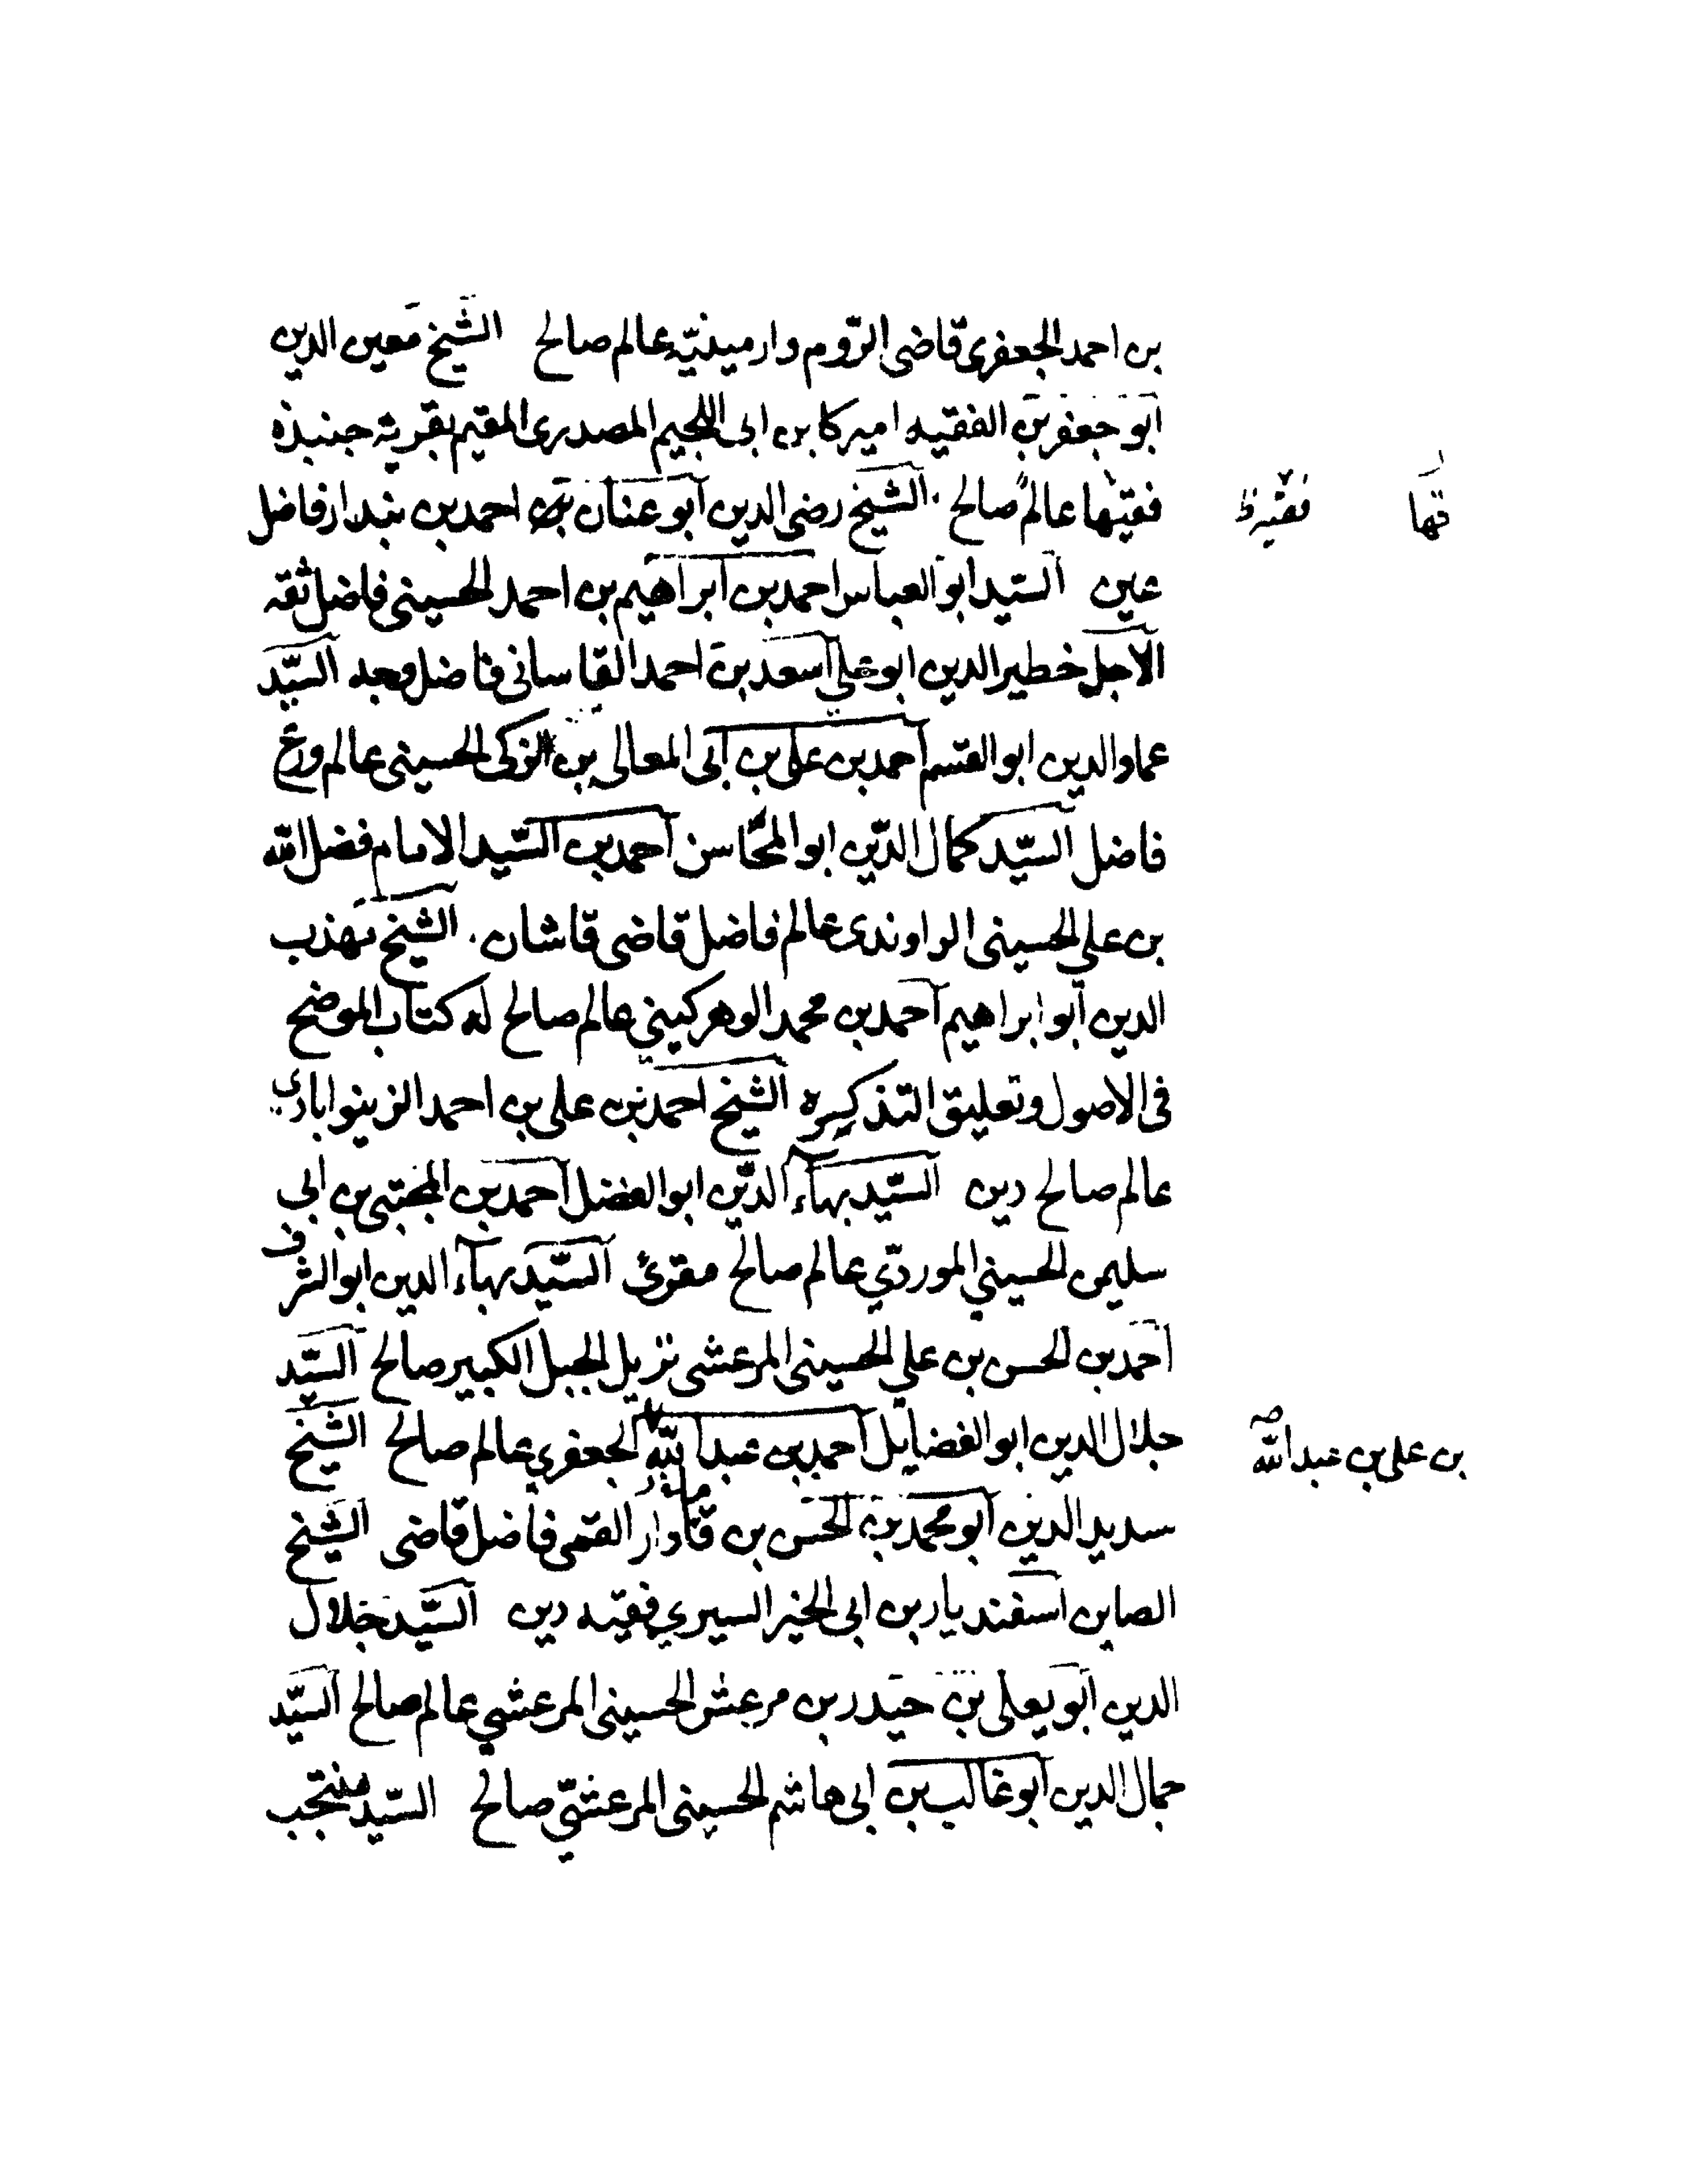 بن احمد الجعفرى قاضى الرّوم وارمينيّه عالم صالح الشّيخ معين الدين
ابو جعفر بن الفقيه اميركا بن ابى اللجيم المصدرى المقيم بقرية جنبذه
فقيها عالم صالح الشّيخ رضى الدين ابو عنان بن احمد بن بندار فاضل
قها
فقيه ظ
عين السّيد ابو العباس احمد بن ابراهيم بن احمد الحسينى فاضل ثقه
الاجل خطير الدين ابو على اسعد بن احمد القاسانى فاضل وجه السّيّد
عماد الدين ابو القسم احمد بن على بن ابى المعالى بن الزكى الحسينى عالم ورع
فاضل السّيّد كمال الدّين ابو المحاسن احمد بن السّيد الامام فضل الله
بن علي الحسينى الراوندى عالم فاضل قاضى قاشان الشيخ مهذب
الدين ابو ابراهيم احمد بن محمد الوهركيني عالم صالح له كتاب الموضح
فى الاصول وتعليق التذكره الشّيخ احمد بن على بن احمد الزينوابادي
عالم صالح دين السّيد بهآء الدّين ابو الفضل احمد بن المجتبى بن ابى
سليمن الحسيني الموردّي عالم صالح مقرئ السّيّد بهآء الدين ابو الشرف
احمد بن الحسن بن علي الحسينى المرعشى نزيل الجبل الكبير صالح السّيّد
جلال الدين ابو الفضايل احمد بن عبد الله الجعفري عالم صالح الشّيخ
بن على بن عبد الله صح
سديد الدين ابو محمد بن الحسن بن القمى فاضل قاضى الشّيخ
الصاين اسفنديار بن ابى الخير السيرى فقيه دين السّيّد جلال
الدين ابو يعلى بن حيدر بن مرعش الحسينى المرعشي عالم صالح السّيّد
جمال الدين ابو غالب بن ابى هاشم الحسينى المرعشّي صالح السّيّد منتجب